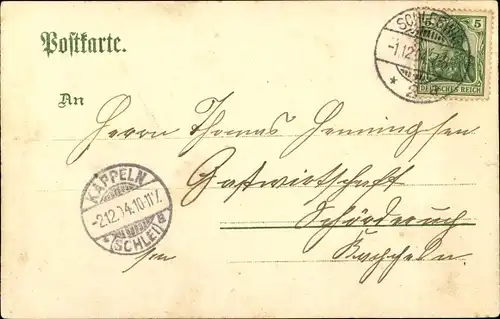 Postkarte.
SCHLESWIG
5
-1.12.04
DEUTSCHES REICH
An
Herrn Thomas Henningsen
KAPPELN
-2.12.04.10-11V.
(SCHLEI) B
Gastwirtschaft